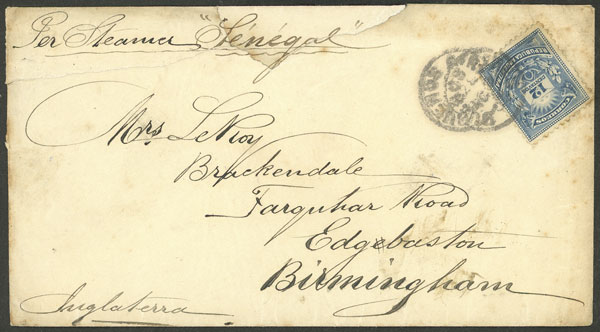 Per Steamer "Sénégal"
Mrs. LeRoy
Brackendale
Farquhar Road
Edgebaston
Birmingham
Inglaterra
12
CORREOS